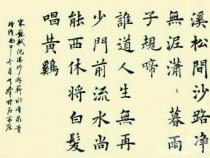 溪松間沙路淨
無泥瀟々暮雨
子規啼
誰道人生無再
少門前流水尚
能西休將白髮
唱黃雞
宋蘇軾浣溪沙游蘄水清泉寺